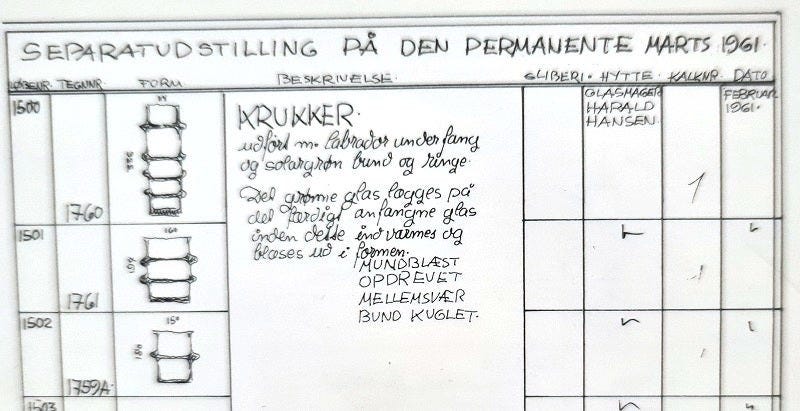 SEPARATUDSTILLING PÅ DEN PERMANENTE MARTS 1961.
LØBENR. TEGN.NR. FORM BESKRIVELSE. SLIBERI. HYTTE. KALK.NR. DATO
1500
1760
KRUKKER.
udført m. labrador underfang
og solargrøn bund og ringe.
Det grønne glas lægges på
det færdigt anfangne glas
inden dette indvarmes og
blæses ud i formen.
MUNDBLÆST
OPDREVET
MELLEMSVÆR
BUND KUGLET.
GLASMAGER
HARALD
HANSEN.
1
FEBRUAR
1961.
1501
160
197
1761
1
1502
150
1759A.
1
1503